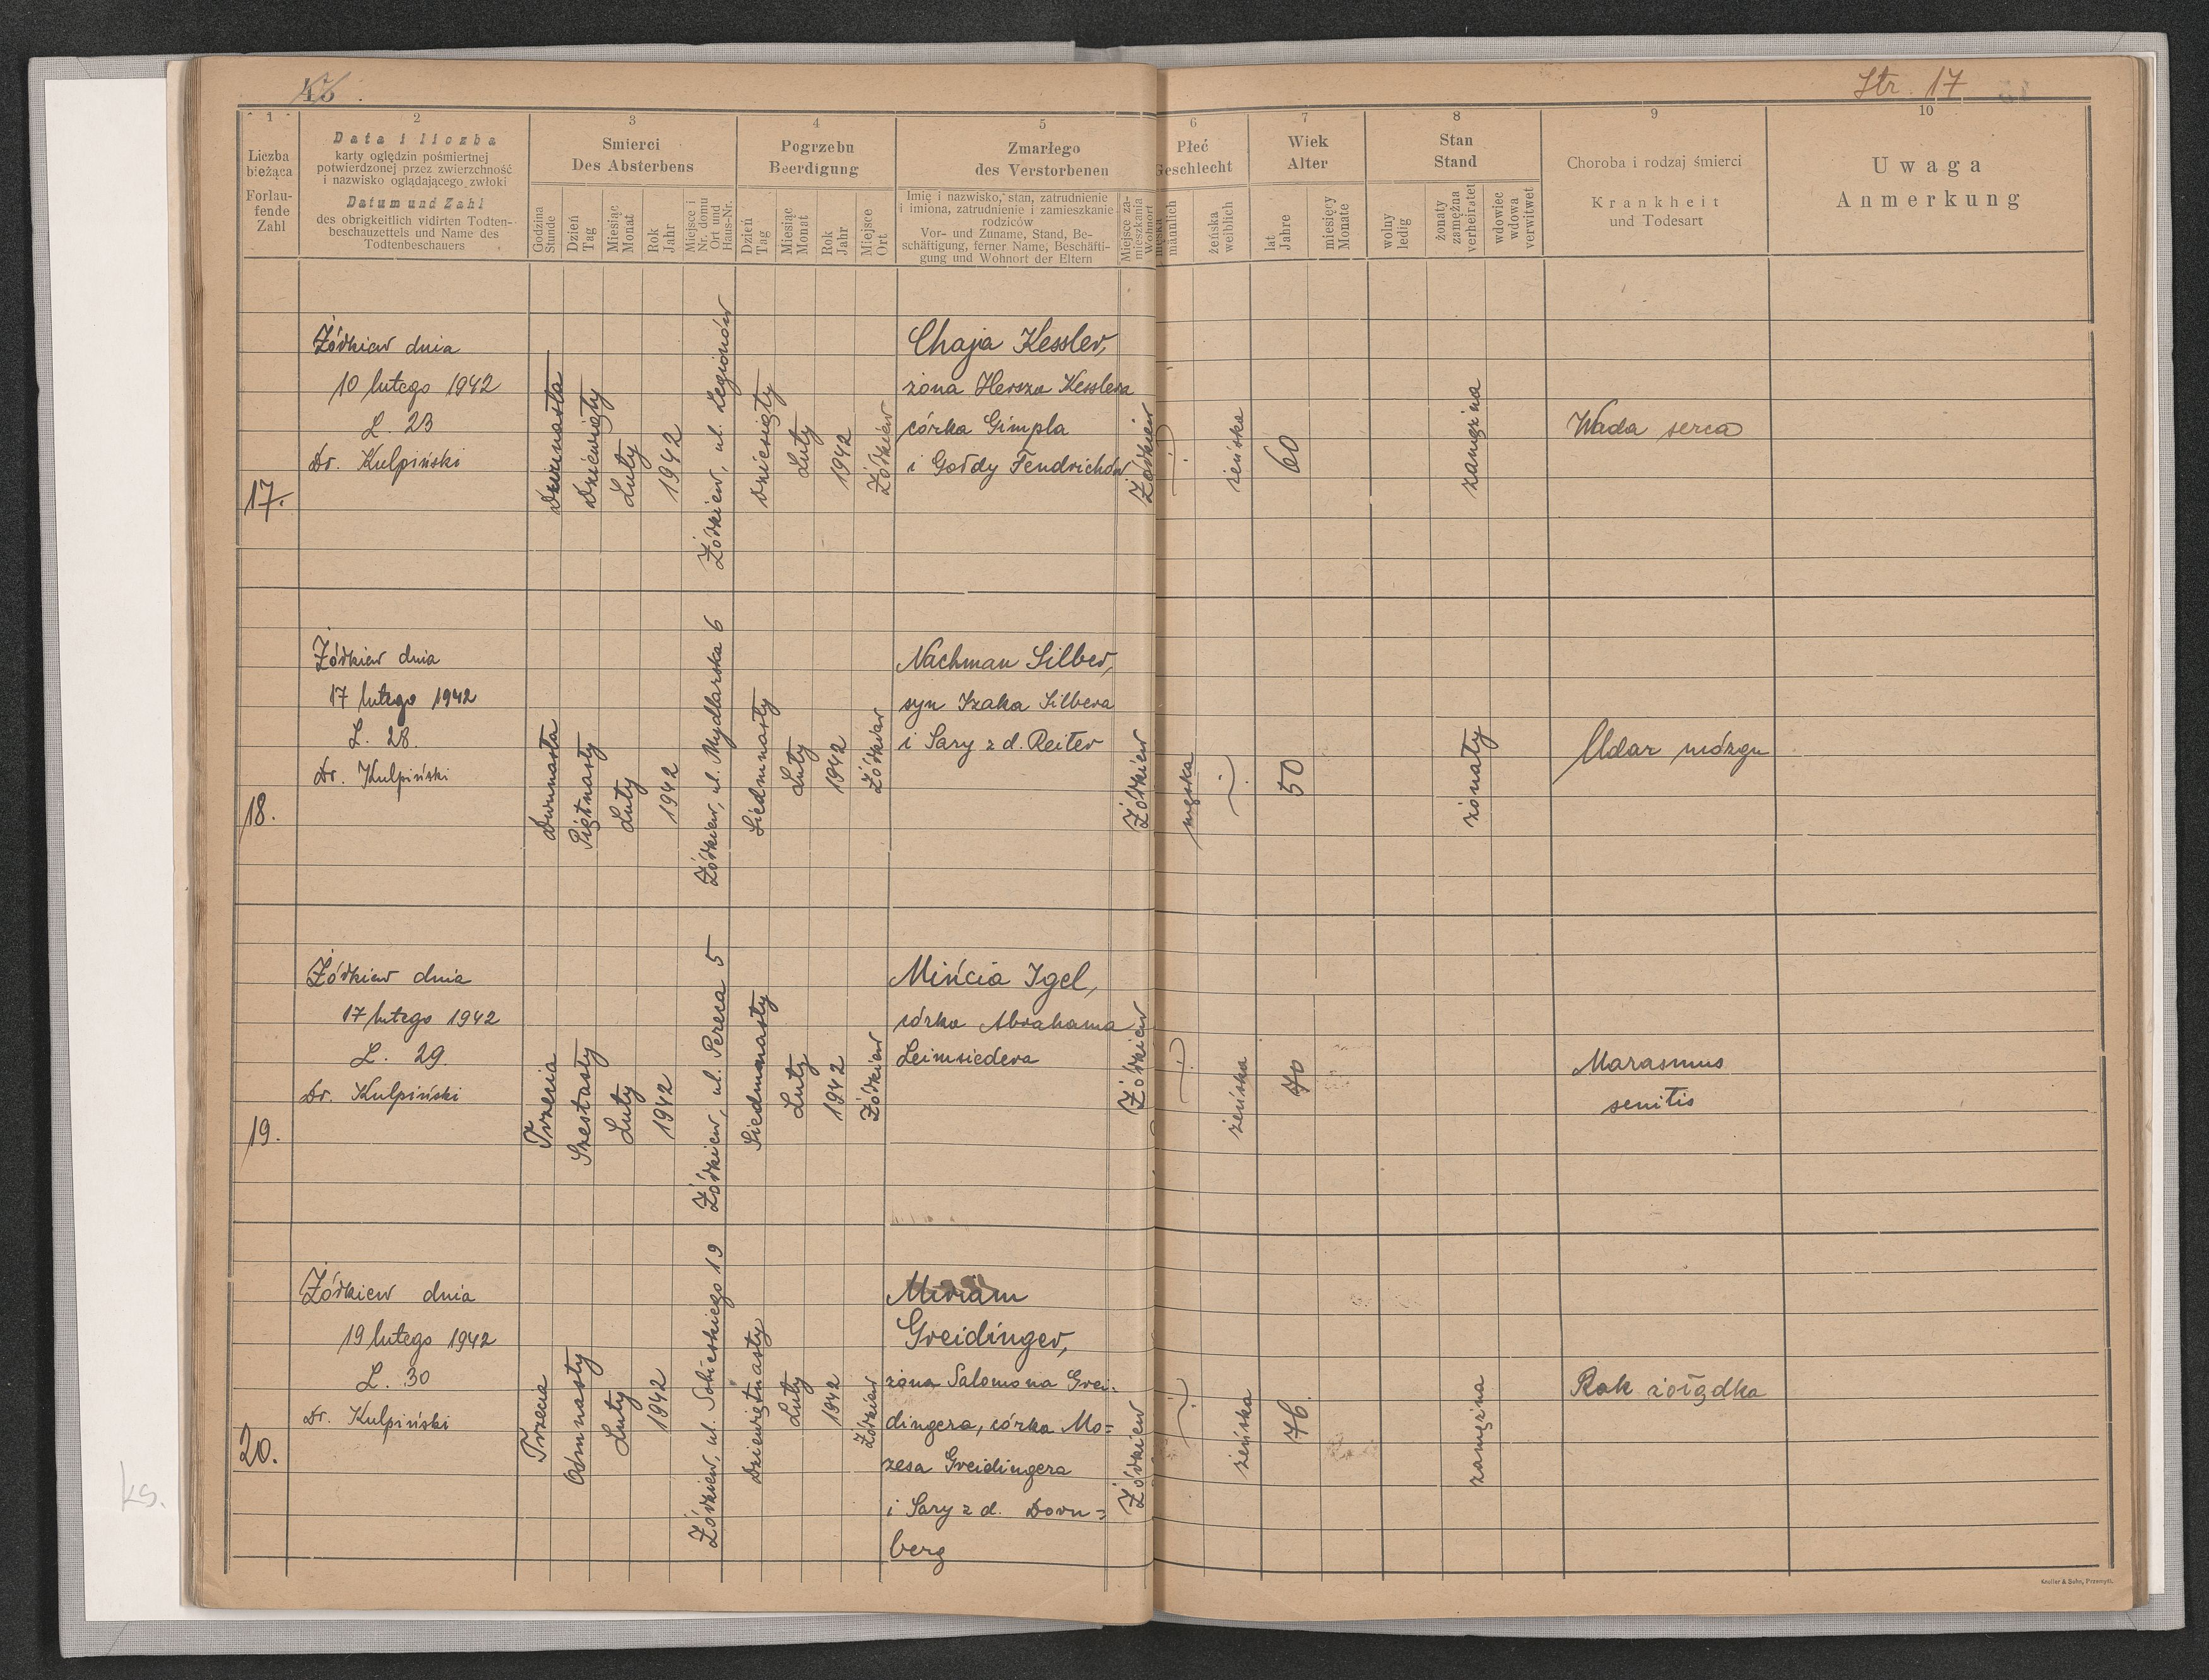 Str. 17
1
2
3
4
5
6
7
8
9
10
Liczba
bieżąca
Forlau-
fende
Zahl
Data i liczba
karty oględzin pośmiertnej
potwierdzonej przez zwierzchność
i nazwisko oglądającego zwłoki
Datum und Zahl
des obrigkeitlich vidirten Todten-
beschauzettels und Name des
Todtenbeschauers
Smierci
Des Absterbens
Godzina
Stunde
Dzień
Tag
Miesiąc
Monat
Rok
Jahr
Miejsce i
Nr. domu
Ort und
Haus-Nr.
Pogrzebu
Beerdigung
Dzień
Tag
Miesiąc
Monat
Rok
Jahr
Miejsce
Ort
Zmarłego
des Verstorbenen
Imię i nazwisko, stan, zatrudnienie
i imiona, zatrudnienie i zamieszkanie
rodziców
Vor- und Zuname, Stand, Be-
schäftigung, ferner Name, Beschäfti-
gung und Wohnort der Eltern
Miejsce za-
mieszkania
Wohnort
Płeć
Geschlecht
męska
männlich
żeńska
weiblich
Wiek
Alter
lat
Jahre
miesięcy
Monate
Stan
Stand
wolny
ledig
żonaty
zamężna
verheiratet
wdowiec
wdowa
verwitwet
Choroba i rodzaj śmierci
Krankheit
und Todesart
Uwaga
Anmerkung
17.
Żółkiew dnia
10 lutego 1942
L. 23
Dr. Kulpiński
Dwunasta
Dziewiąty
Luty
1942
Żółkiew, ul. Legionów
Dziesiąty
Luty
1942
Żółkiew
Chaja Kessler,
żona Hersza Kesslera
córka Gimpla
i Gołdy Fendrichów
Żółkiew
żeńska
60
zamężna
Wada serca
18.
Żółkiew dnia
17 lutego 1942
L. 28.
Dr. Kulpiński
Dwunasta
Piętnasty
Luty
1942
Żółkiew, ul. Mydlarska 6
Siedmnasty
Luty
1942
Żółkiew
Nachman Silber,
syn Izaka Silbera
i Sary z d. Reiter
Żółkiew
męska
50
żonaty
Udar mózgu
19.
Żółkiew dnia
17 lutego 1942
L. 29.
Dr. Kulpiński
Trzecia
Szestasty
Luty
1942
Żółkiew, ul. Pereca 5
Siedmnasty
Luty
1942
Żółkiew
Mińcia Igel,
córka Abrahama
Leimsiedera
Żółkiew
żeńska
70
Marasmus
senilis
20.
Żółkiew dnia
19 lutego 1942
L. 30
Dr. Kulpiński
Trzecia
Ośmnasty
Luty
1942
Żółkiew, ul. Sobieskiego 19
Dziewiętnasty
Luty
1942
Żółkiew
Miriam
Greidinger,
żona Salomona Grei-
dingera, córka Mo=
zesa Greidingera
i Sary z d. Dorn=
berg
Żółkiew
żeńska
76.
zamężna
Rak żołądka
ks.
Knoller & Sohn, Przemyśl.